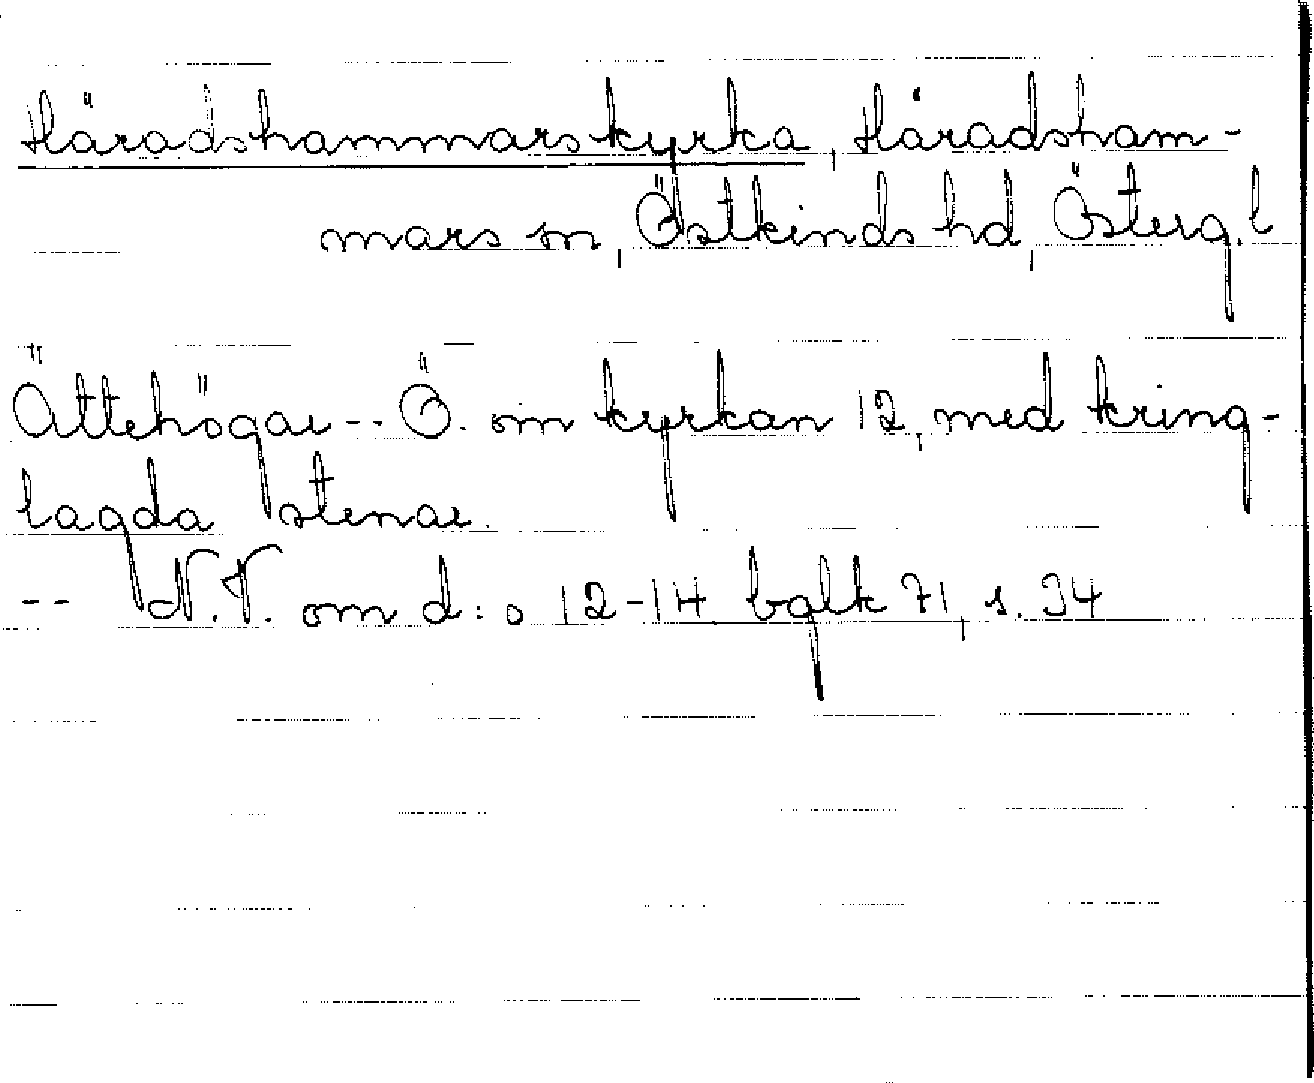 Häradshammars kyrka, Häradsham-
mars sn, Östkinds hd, Österg. l
Ättehögar -- Ö. om kyrkan 12, med kring-
lagda stenar.
-- N.V. om d:o 12-14 balk 71, s. 34